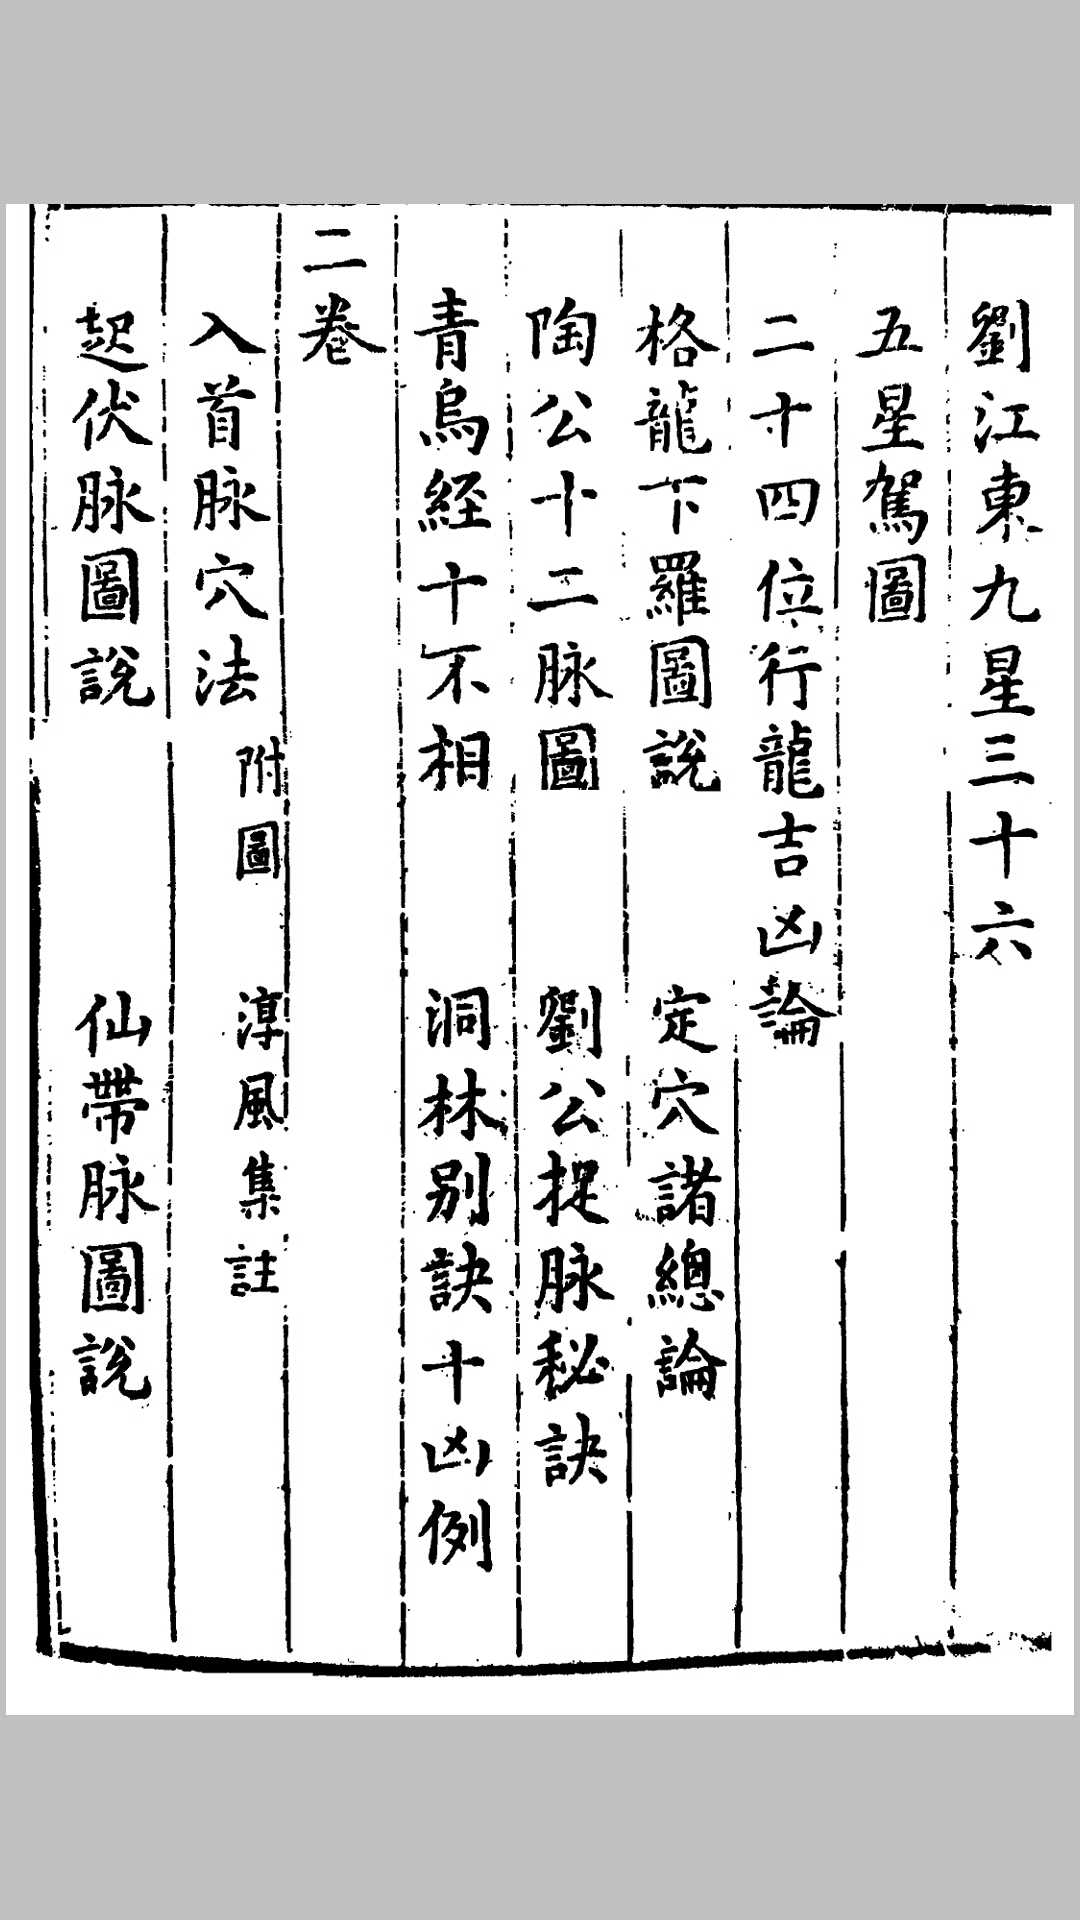 劉江東九星三十六
五星駕圖
二十四位行龍吉凶論
格龍下羅圖說　定穴諸總論
陶公十二脉圖　劉公捉脉秘訣
青烏經十不相　洞林別訣十凶例
二卷
入首脉穴法　附圖　淳風集註
起伏脉圖說　仙帶脉圖說